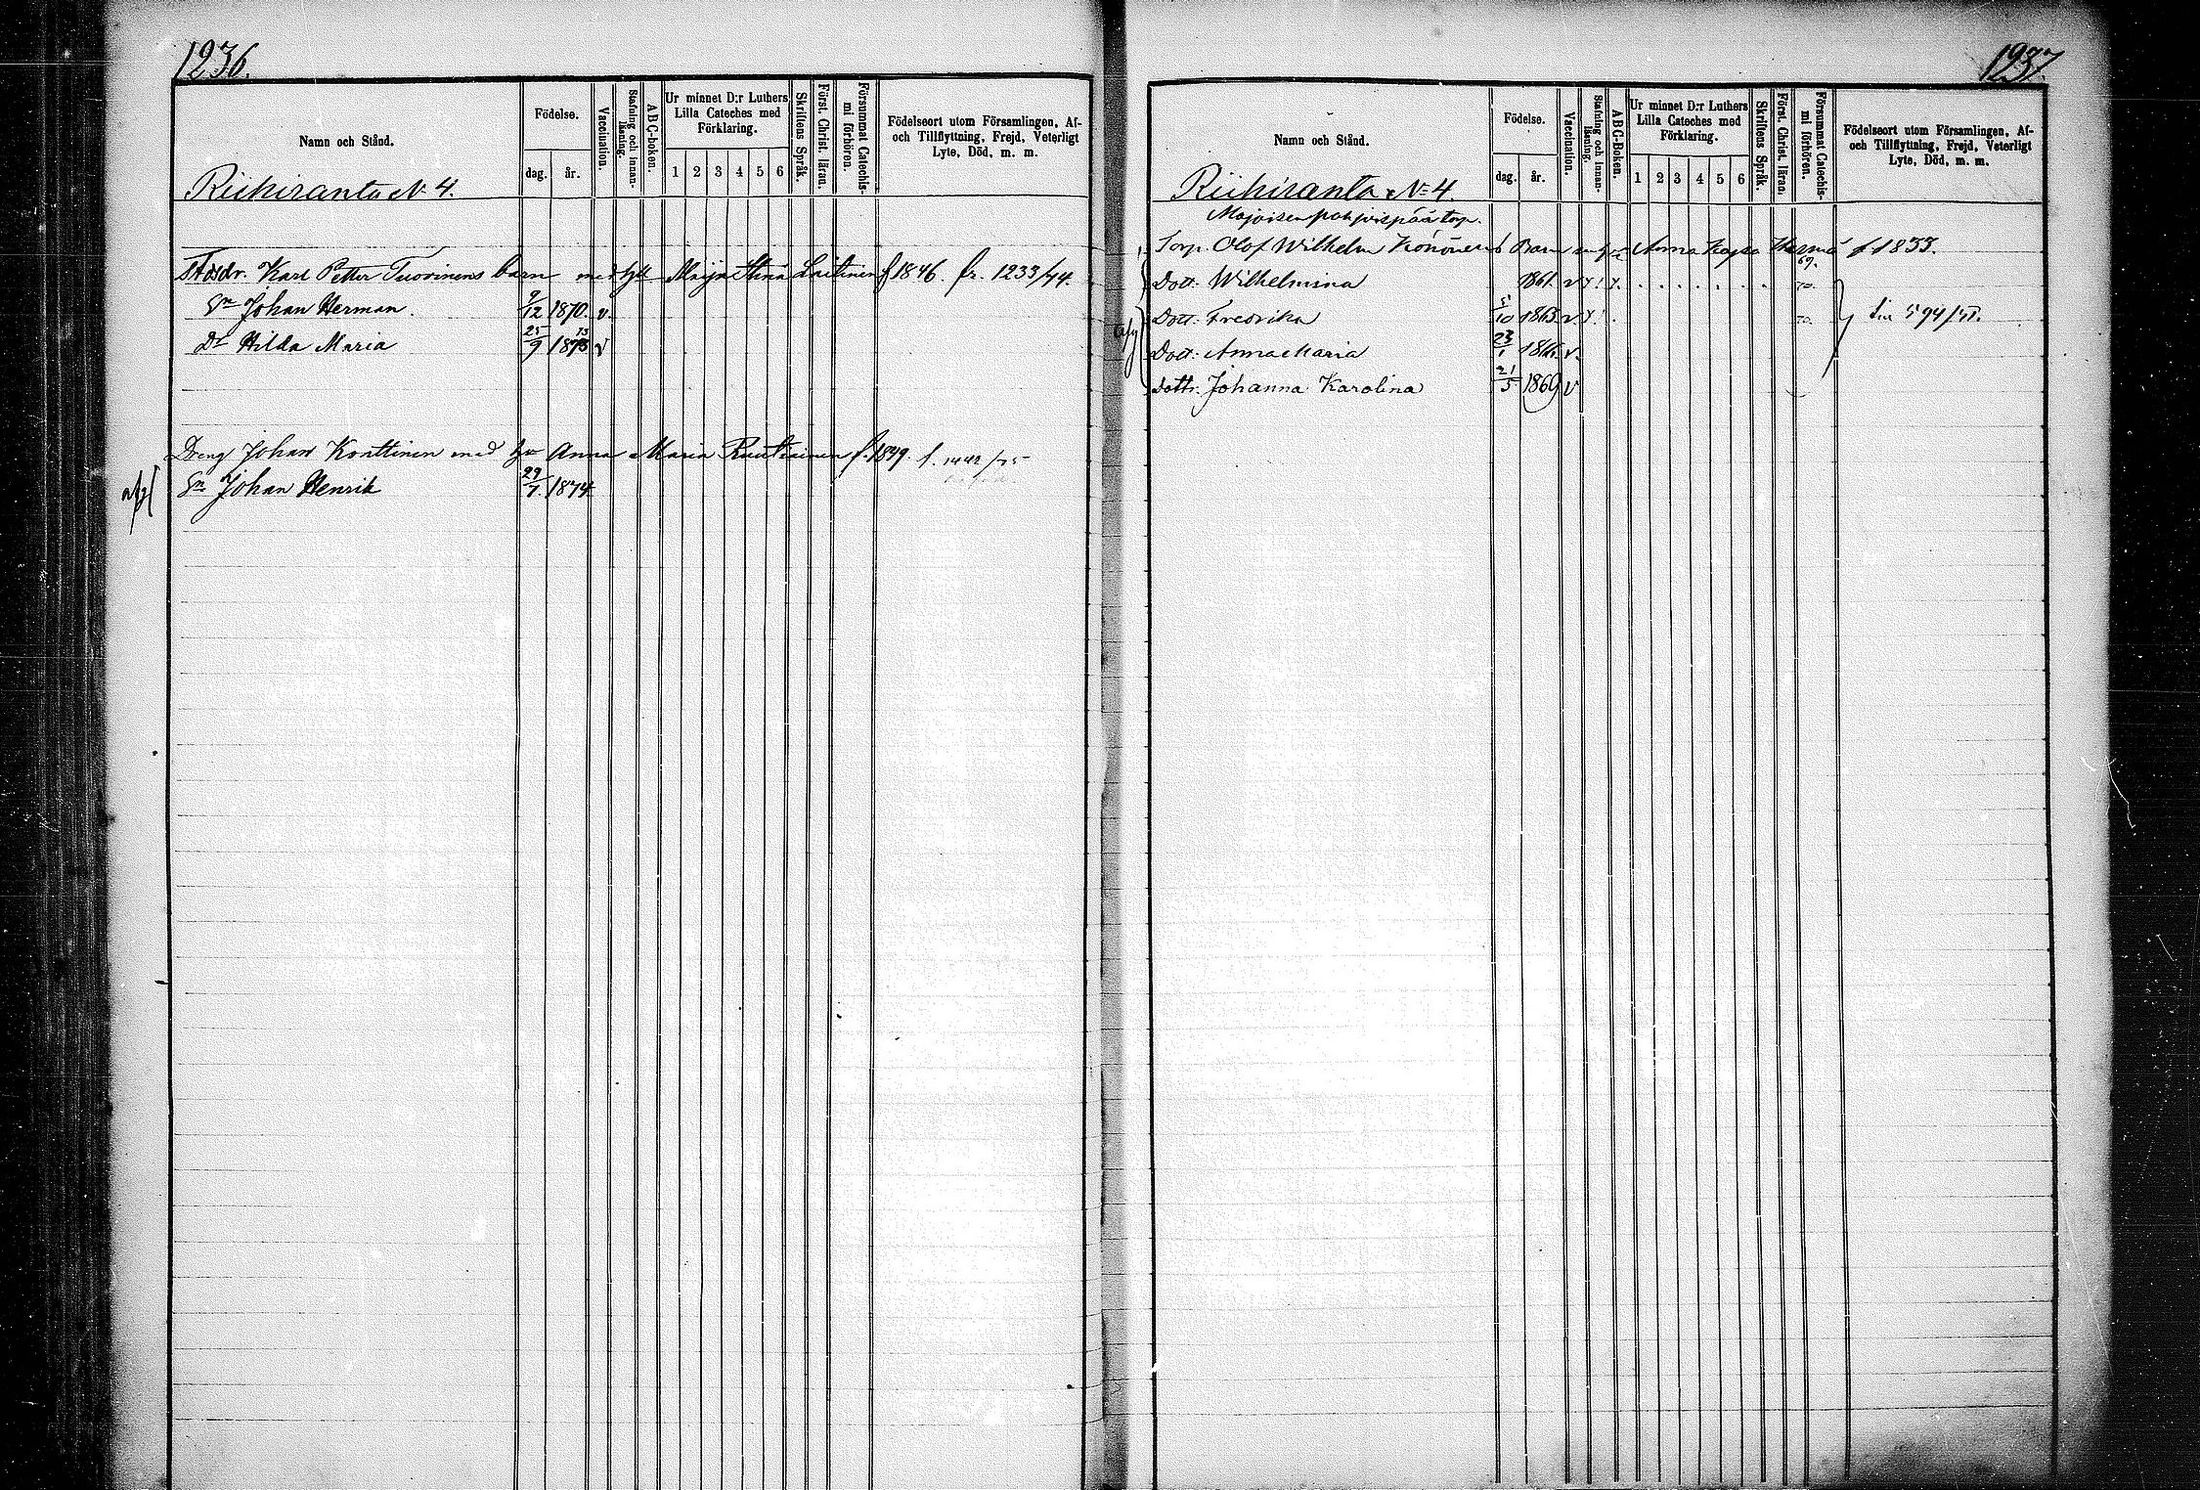 1236.
Namn och Stånd.
Födelse.
dag. år.
Vaccination.
Stafning och innanläsning.
ABC-boken.
Ur minnet D:r Luthers Lilla Cateches med Förklaring.
1 2 3 4 5 6
Skriftens Språk.
Först. Christ. läran.
Försummat Catechismi förhören.
Födelseort utom Församlingen, Af- och Tillflyttning, Frejd, Veterligt Lyte, Död, m. m.
Riihiranta N 4.
Karl Petter Tuovinens barn med Maija Stina Laitinen f 1846. fr. 1233/74.
Sn Johan Herman. 9/12 1870. v.
Dr Hilda Maria 25/9 1873 v
Dreng Johan Konttinen med hu Anna Maria Ruutiainen f. 1849. f.
Sn Johan Henrik 29/7. 1874
1237
Namn och Stånd.
Födelse.
dag. år.
Vaccination.
Stafning och innanläsning.
ABC-Boken.
Ur minnet D:r Luthers Lilla Cateches med Förklaring.
1 2 3 4 5 6
Skriftens Språk.
Först. Christ. läran.
Försummat Catechismi förhören.
Födelseort utom Församlingen, Af- och Tillflyttning, Frejd, Veterligt Lyte, Död, m. m.
Riihiranta N=4.
Torp. Olof Wilhelm Könönens Barn Anna f 1833.
69.
Dott. Wilhelmina 1861. v 70.
Dott: Fredrika 5/10 1863 v. 70. 594/
Dott: Anna Maria 23/1 1866. v.
Dottr. Johanna Karolina 21/5 1869 v